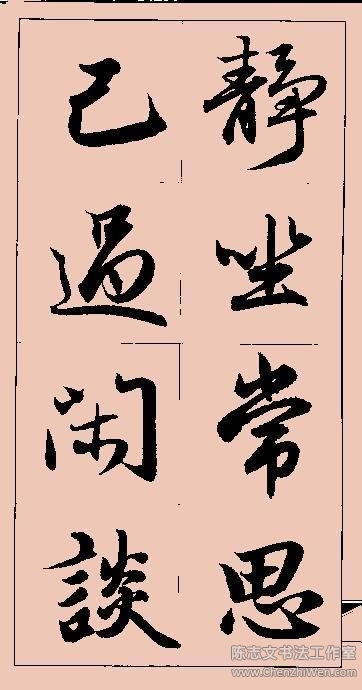 静坐常思
己過闲談
陈志文书法工作室
www.chenzhiwen.com